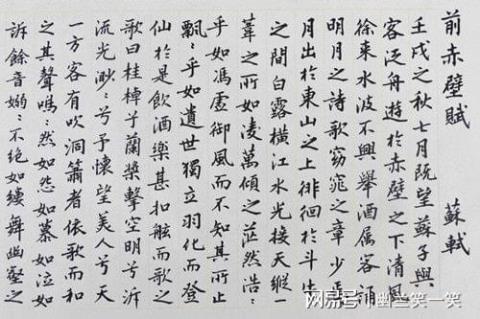 前赤壁賦 蘇軾
壬戌之秋七月既望蘇子與
客泛舟遊於赤壁之下清風
徐來水波不興舉酒属客誦
明月之詩歌窈窕之章少焉
月出於東山之上徘徊於斗牛
之間白露橫江水光接天縱一
葦之所如凌萬頃之茫然浩:
乎如馮虛御風而不知其所止
飄:乎如遺世獨立羽化而登
仙於是飲酒樂甚扣舷而歌之
歌曰桂棹兮蘭槳擊空明兮泝
流光渺:兮予懷望美人兮天
一方客有吹洞簫者依歌而和
之其聲嗚:然如怨如慕如泣如
訴餘音嫋:不绝如縷舞幽壑之
网易号 幽兰笑一笑